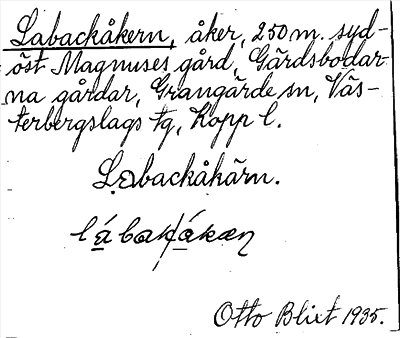 Labackåkern, åker, 250 m. syd-
öst Magnuses gård, Gärdsbodar-
na gårdar, Grangärde sn, Väs-
terbergslags tg, Kopp l.
Labackåhärn.
Otto Blixt 1935.